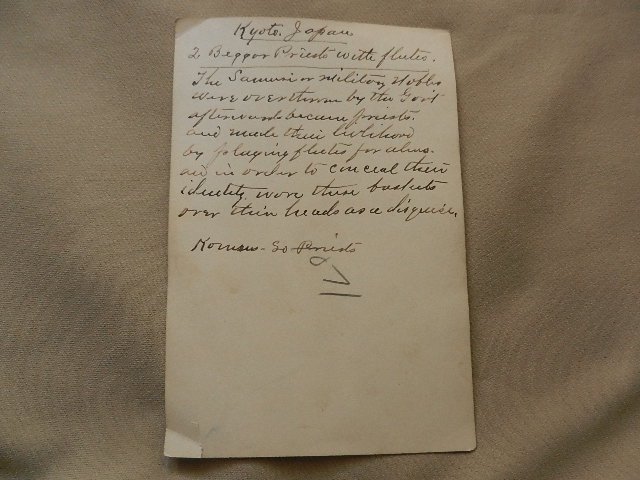 Kyoto. Japan
2 Beggar Priests with flutes.
The Samuri or military Nobles
were overthrown by the Gov't
afterwards became priests.
and made their livlihood
by playing flutes for alms.
and in order to conceal their
identity, wore these baskets
over their heads as a disguise.
Komus-So Priests
V